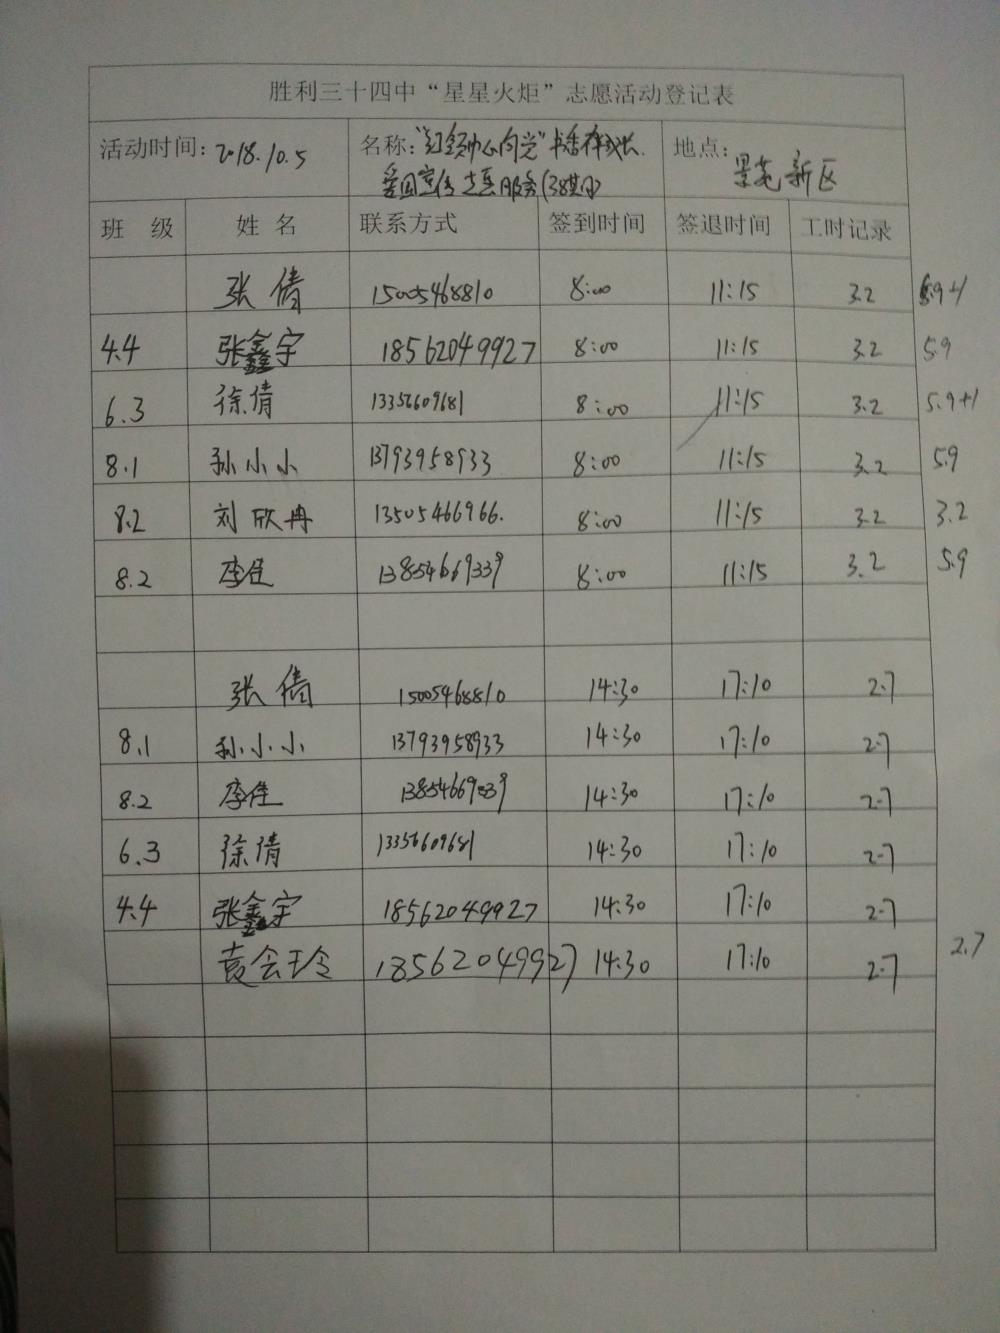 胜利三十四中“星星火炬”志愿活动登记表
活动时间: 2018.10.5 名称: “红领巾心向党”书香伴成长. 地点: 景苑新区
爱国宣传志愿服务(38期)
班 级 姓 名 联系方式 签到时间 签退时间 工时记录
张倩 15005468810 8:00 11:15 3.2 5.9+1
4.4 张鑫宇 18562049927 8:00 11:15 3.2 5.9
6.3 徐倩 13356609681 8:00 11:15 3.2 5.9+1
8.1 孙小小 13793958933 8:00 11:15 3.2 5.9
8.2 刘欣冉 13505466966. 8:00 11:15 3.2 3.2
8.2 李佳 13854669339 8:00 11:15 3.2 5.9
张倩 15005468810 14:30 17:10 2.7
8.1 孙小小 13793958933 14:30 17:10 2.7
8.2 李佳 14:30 17:10 2.7
6.3 徐倩 13356609681 14:30 17:10 2.7
4.4 张鑫宇 18562049927 14:30 17:10 2.7
袁会玲 18562049927 14:30 17:10 2.7 2.7